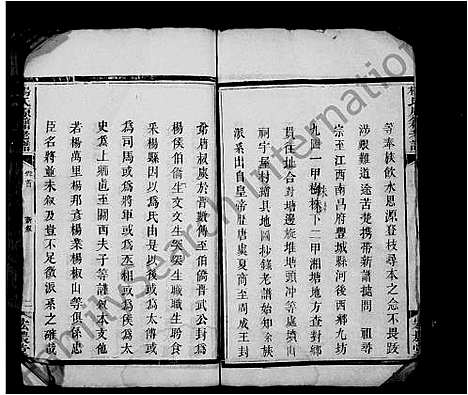 等奉挾飲水思源登枝尋本之念不畏跋
涉艱難道途苦楚携帶新譜挺問 祖尋
宗至江西南昌府豐城縣河後西鄉九坊
九圖一甲樹林下二甲湘塘地方查封鄉
貫住址合封塘邊旋堆塘頭冲等處墳山
祠宇屋村繪具地圖抄錄老譜始知余族
派系出自皇帝歷唐虞夏商至周成王封
弟唐叔虞於晉數傳至伯僑晉武公封為
楊侯伯僑生文文生突突生職職生肸食
采楊縣因以為氏由是以後或為太傅或
為司馬或為將軍或為丞相或為侯為太
史為上卿迨至關西夫子等譜敘本支他
若楊萬里楊邦彥楊業楊椒山等俱係忠
臣名將並未敘及豈不足徵派系之確哉